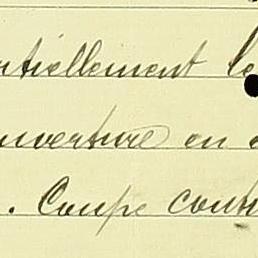 ntiellement le
uverture en
. Coupe cont